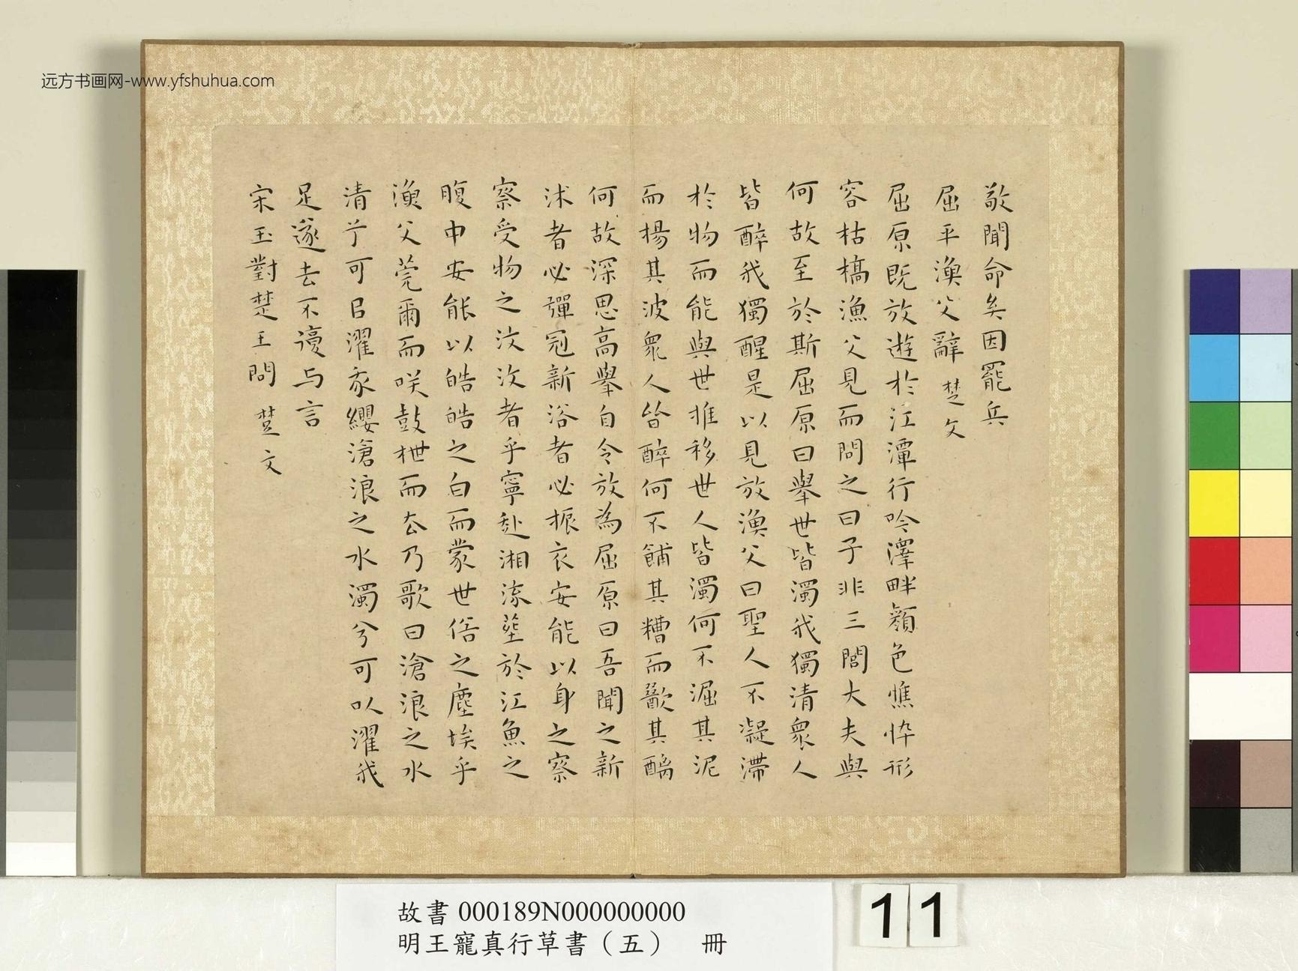 远方书画网-www.yfshuhua.com
敬聞命矣因罷兵
屈平漁父辭 楚文
屈原既放遊於江潭行吟澤畔顏色憔悴形
容枯槁漁父見而問之曰子非三閭大夫與
何故至於斯屈原曰舉世皆濁我獨清衆人
皆醉我獨醒是以見放漁父曰聖人不凝滯
於物而能與世推移世人皆濁何不淈其泥
而楊其波衆人皆醉何不餔其糟而歠其醨
何故深思高舉自令放為屈原曰吾聞之新
沐者必彈冠新浴者必振衣安能以身之察
察受物之汶汶者乎寧赴湘流塟於江魚之
腹中安能以皓皓之白而蒙世俗之塵埃乎
漁父莞爾而咲鼓枻而去乃歌曰滄浪之水
清兮可㠯濯我纓滄浪之水濁兮可以濯我
足遂去不復与言
宋玉對楚王問 楚文
故書 000189N000000000
明王寵真行草書（五） 冊
11